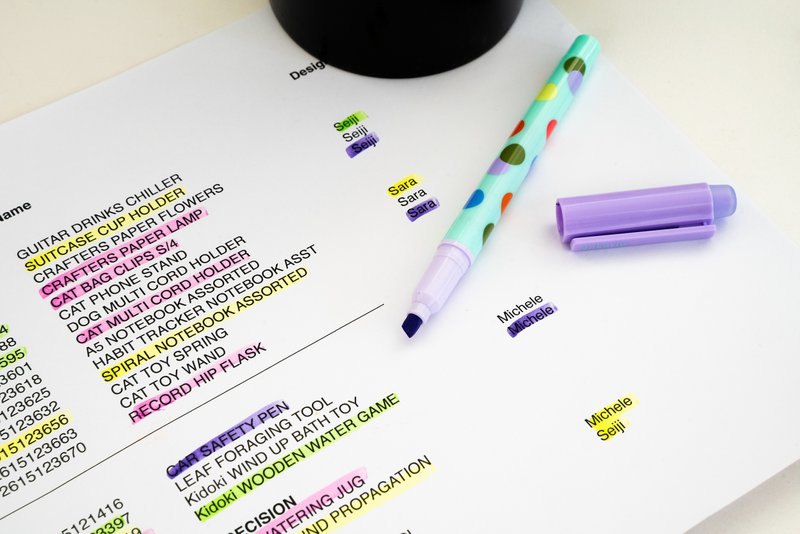 Design
Seiji
Seiji
Seiji
Name
GUITAR DRINKS CHILLER
SUITCASE CUP HOLDER
CRAFTERS PAPER FLOWERS
CRAFTERS PAPER LAMP
CAT BAG CLIPS S/4
CAT PHONE STAND
DOG MULTI CORD HOLDER
CAT MULTI CORD HOLDER
A5 NOTEBOOK ASSORTED
HABIT TRACKER NOTEBOOK ASST
SPIRAL NOTEBOOK ASSORTED
CAT TOY SPRING
CAT TOY WAND
RECORD HIP FLASK
Sara
Sara
Sara
Michele
Michele
4
88
595
3601
23618
5123625
5123632
615123656
2615123663
2615123670
CAR SAFETY PEN
LEAF FORAGING TOOL
Kidoki WIND UP BATH TOY
Kidoki WOODEN WATER GAME
Michele
Seiji
5121416
23397
ECISION
WATERING JUG
ND PROPAGATION